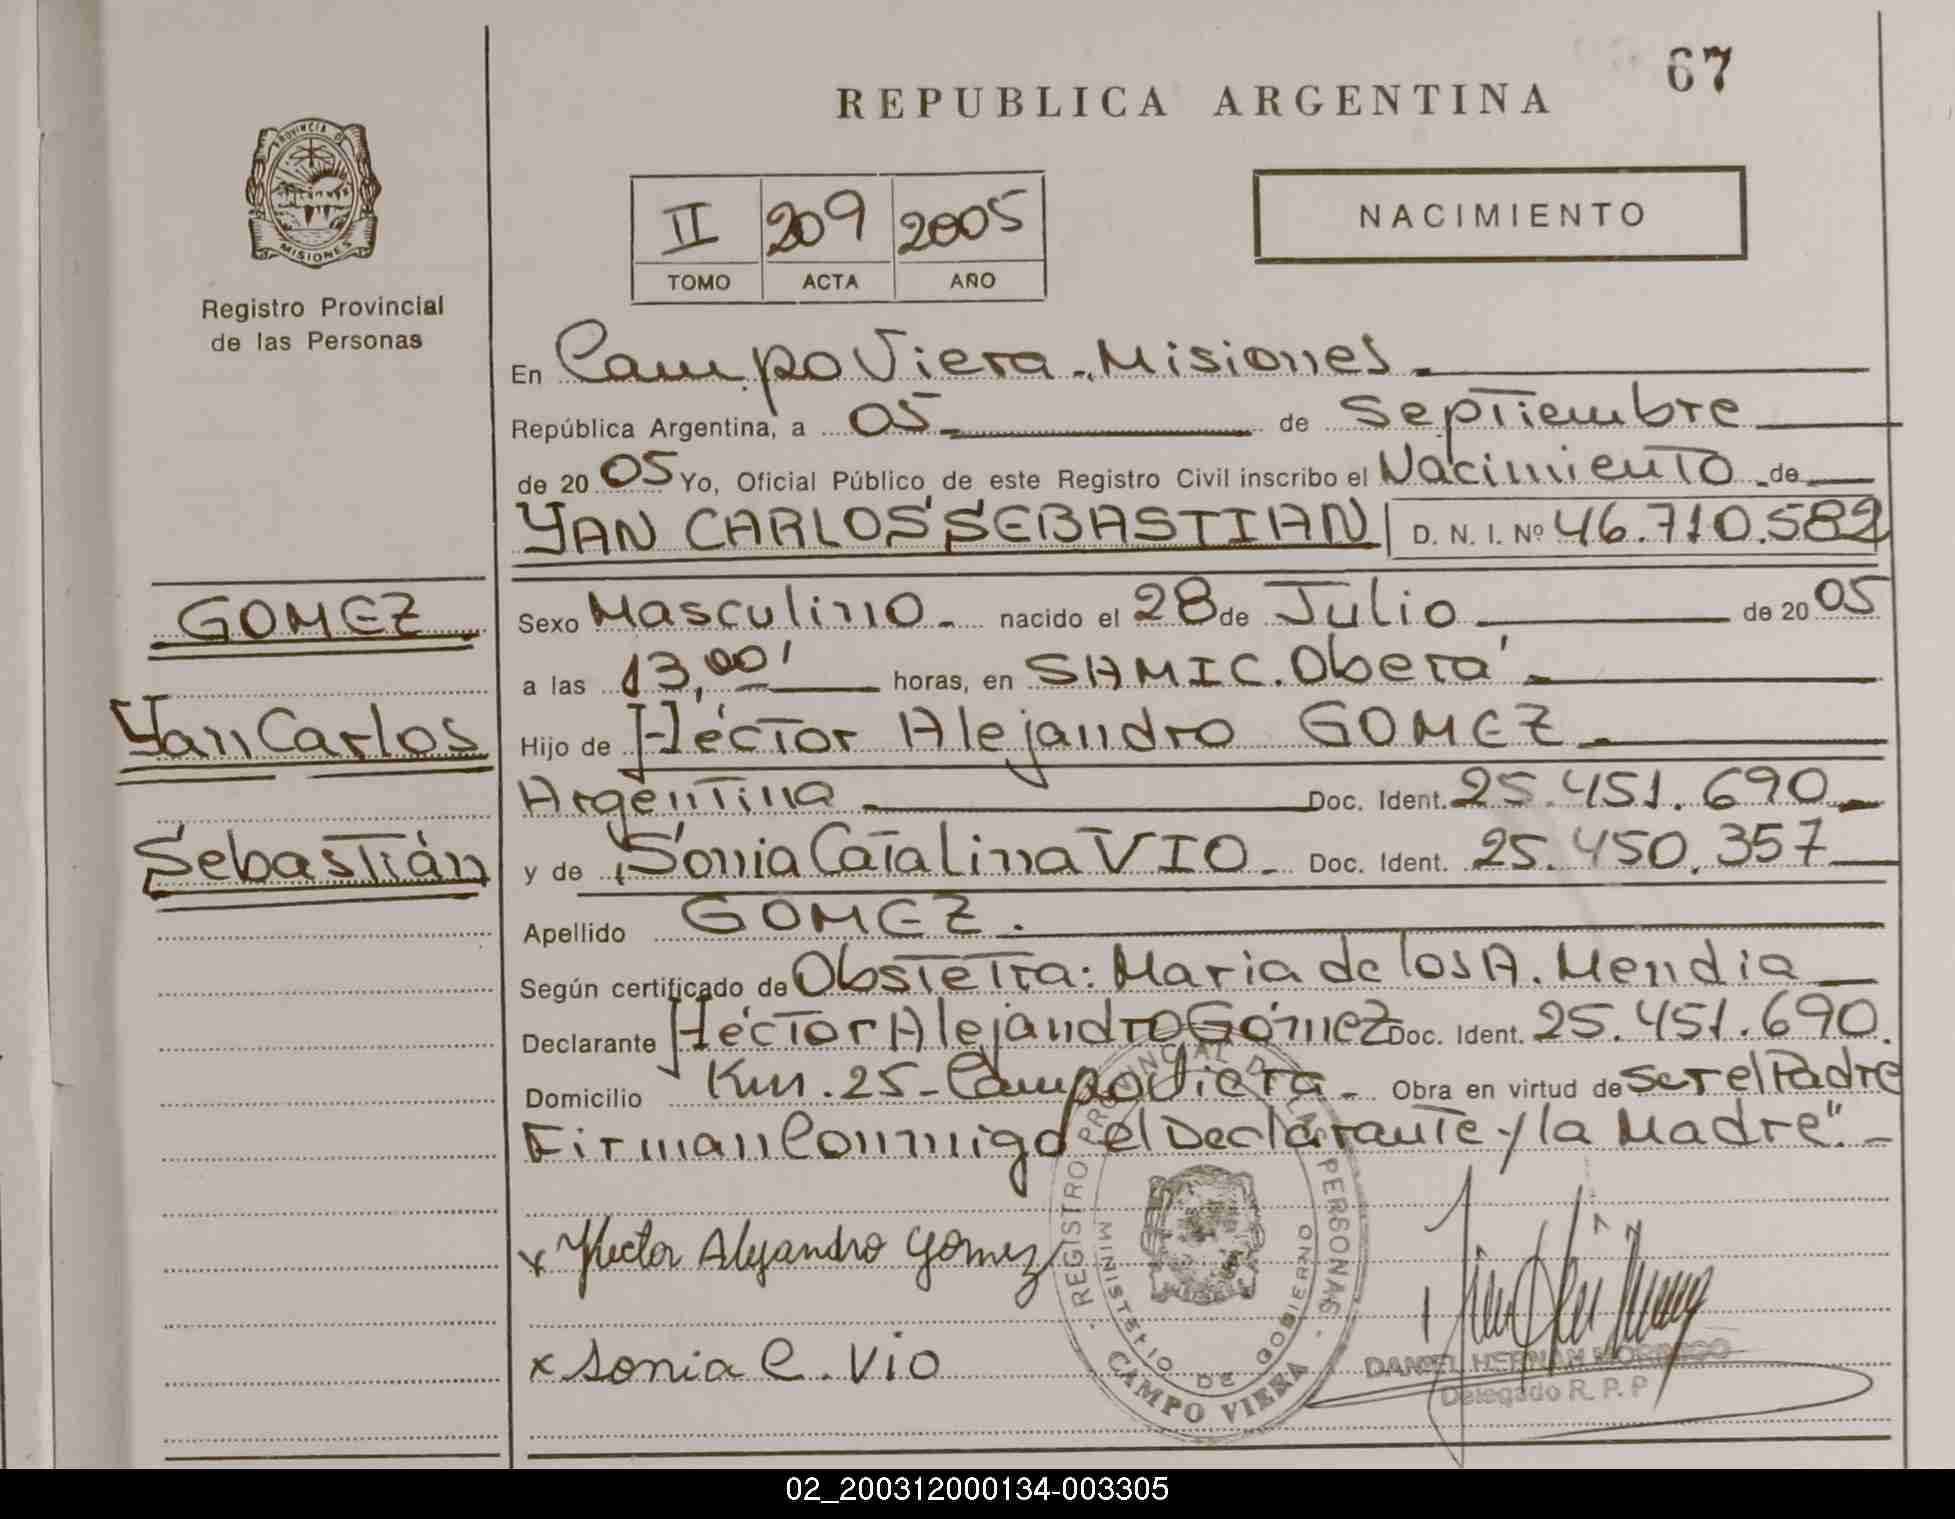 67
REPUBLICA ARGENTINA
PROVINCIA DE
MISIONES
Registro Provincial
de las Personas
II 209 2005
TOMO ACTA AÑO
NACIMIENTO
En Campo Viera.. Misiones.
República Argentina, a 05 de Septiembre
de 20 05 Yo, Oficial Público de este Registro Civil inscribo el Nacimiento de
YAN CARLOS SEBASTIAN D. N. I. Nº 46.710.582
GOMEZ
Yan Carlos
Sebastián
Sexo Masculino nacido el 28 de Julio de 20 05
a las 13,00' horas, en SAMIC. Oberá
Hijo de Héctor Alejandro GOMEZ
Argentina Doc. Ident. 25.451.690
y de Sonia Catalina VIO Doc. Ident. 25.450.357
Apellido GOMEZ.
Según certificado de Obstetra: Maria de los A. Mendia
Declarante Héctor Alejandro Gómez Doc. Ident. 25.451.690.
Domicilio Km. 25 - Campo Viera Obra en virtud de ser el Padre
Firman Conmigo el Declarante y la Madre". -
x Hector Alejandro Gomez
x Sonia C. Vio
REGISTRO PROVINCIAL DE LAS PERSONAS
MINISTERIO DE GOBIERNO
CAMPO VIERA
DANIEL HERNAN
Delegado R. P. P
02_200312000134-003305